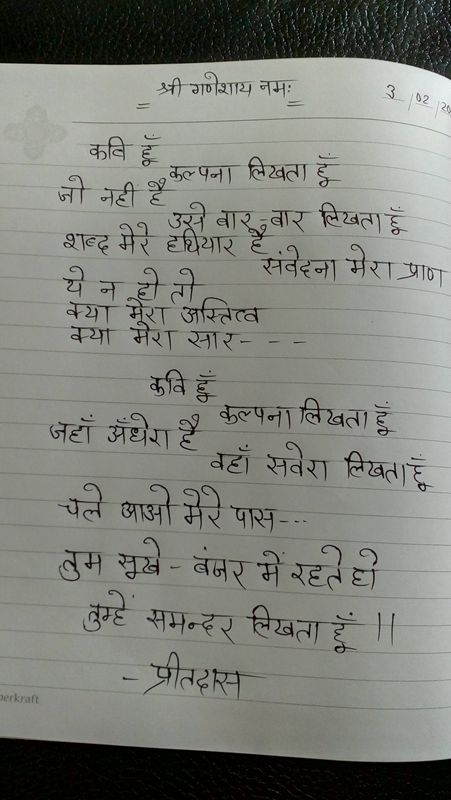 श्री गणेशाय नमः
3/02/20
कवि हूँ
कल्पना लिखता हूँ
जो नही है
उसे बार-बार लिखता हूँ
शब्द मेरे हथियार है,
संवेदना मेरा प्राण
ये न हो तो
क्या मेरा अस्तित्व
क्या मेरा सार---
कवि हूँ
कल्पना लिखता हूँ
जहाँ अँधेरा है
वहाँ सवेरा लिखता हूँ
चले आओ मेरे पास---
तुम सूखे-बंजर में रहते हो
तुम्हें समन्दर लिखता हूँ ||
- प्रीतदास
erkraft